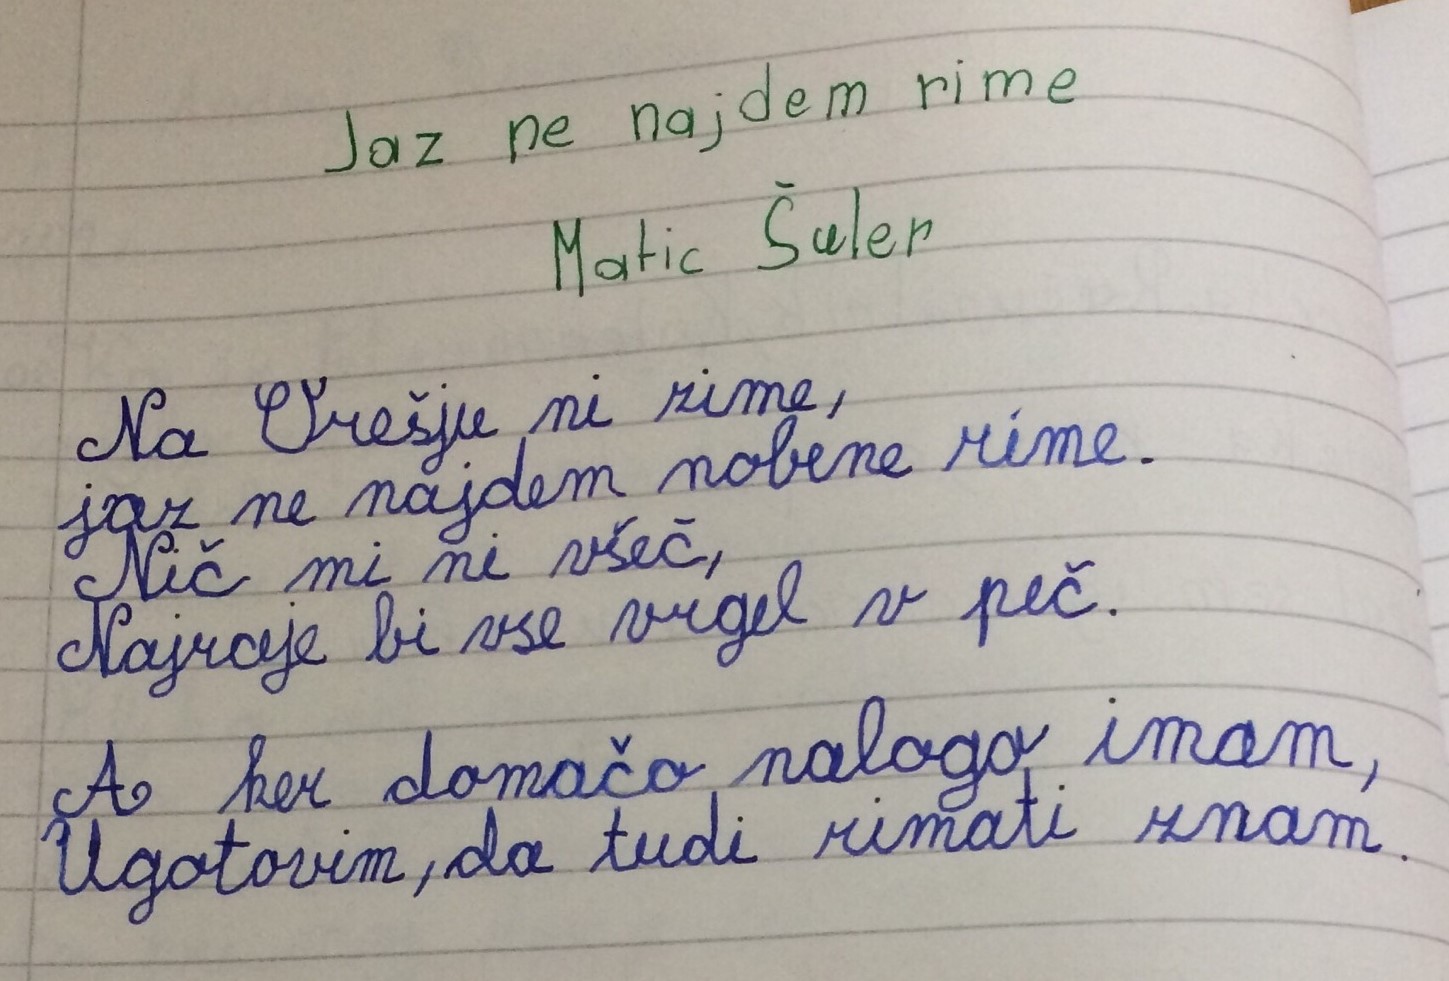 Jaz ne najdem rime
Matic Šuler
Na Orešju ni zime,
jaz ne najdem nobene rime.
Nič mi ni všeč,
Najraje bi vse vrgel v peč.
A ker domačo nalogo imam,
Ugotovim, da tudi rimati znam.